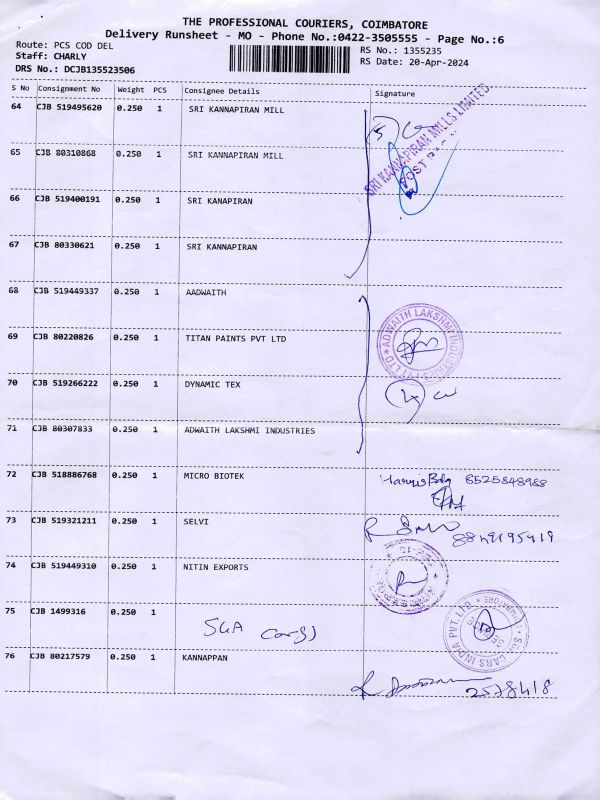 THE PROFESSIONAL COURIERS, COIMBATORE
Delivery Runsheet - MO - Phone No.:0422-3505555 - Page No.:6
Route: PCS COD DEL
Staff: CHARLY
DRS No.: DCJB135523506
RS No.: 1355235
RS Date: 20-Apr-2024
S No Consignment No Weight PCS Consignee Details Signature
64 CJB 519495620 0.250 1 SRI KANNAPIRAN MILL
SRI KANNAPIRAN MILLS LIMITED.
65 CJB 80310868 0.250 1 SRI KANNAPIRAN MILL
66 CJB 519400191 0.250 1 SRI KANAPIRAN
67 CJB 80330621 0.250 1 SRI KANNAPIRAN
68 CJB 519449337 0.250 1 AADWAITH
69 CJB 80220826 0.250 1 TITAN PAINTS PVT LTD
ADWAITH LAKSHMI INDUSTRIES PVT LTD
70 CJB 519266222 0.250 1 DYNAMIC TEX
71 CJB 80307833 0.250 1 ADWAITH LAKSHMI INDUSTRIES
72 CJB 518886768 0.250 1 MICRO BIOTEK 8525848988
73 CJB 519321211 0.250 1 SELVI
74 CJB 519449310 0.250 1 NITIN EXPORTS
75 CJB 1499316 0.250 1 SGA Cargs
76 CJB 80217579 0.250 1 KANNAPPAN